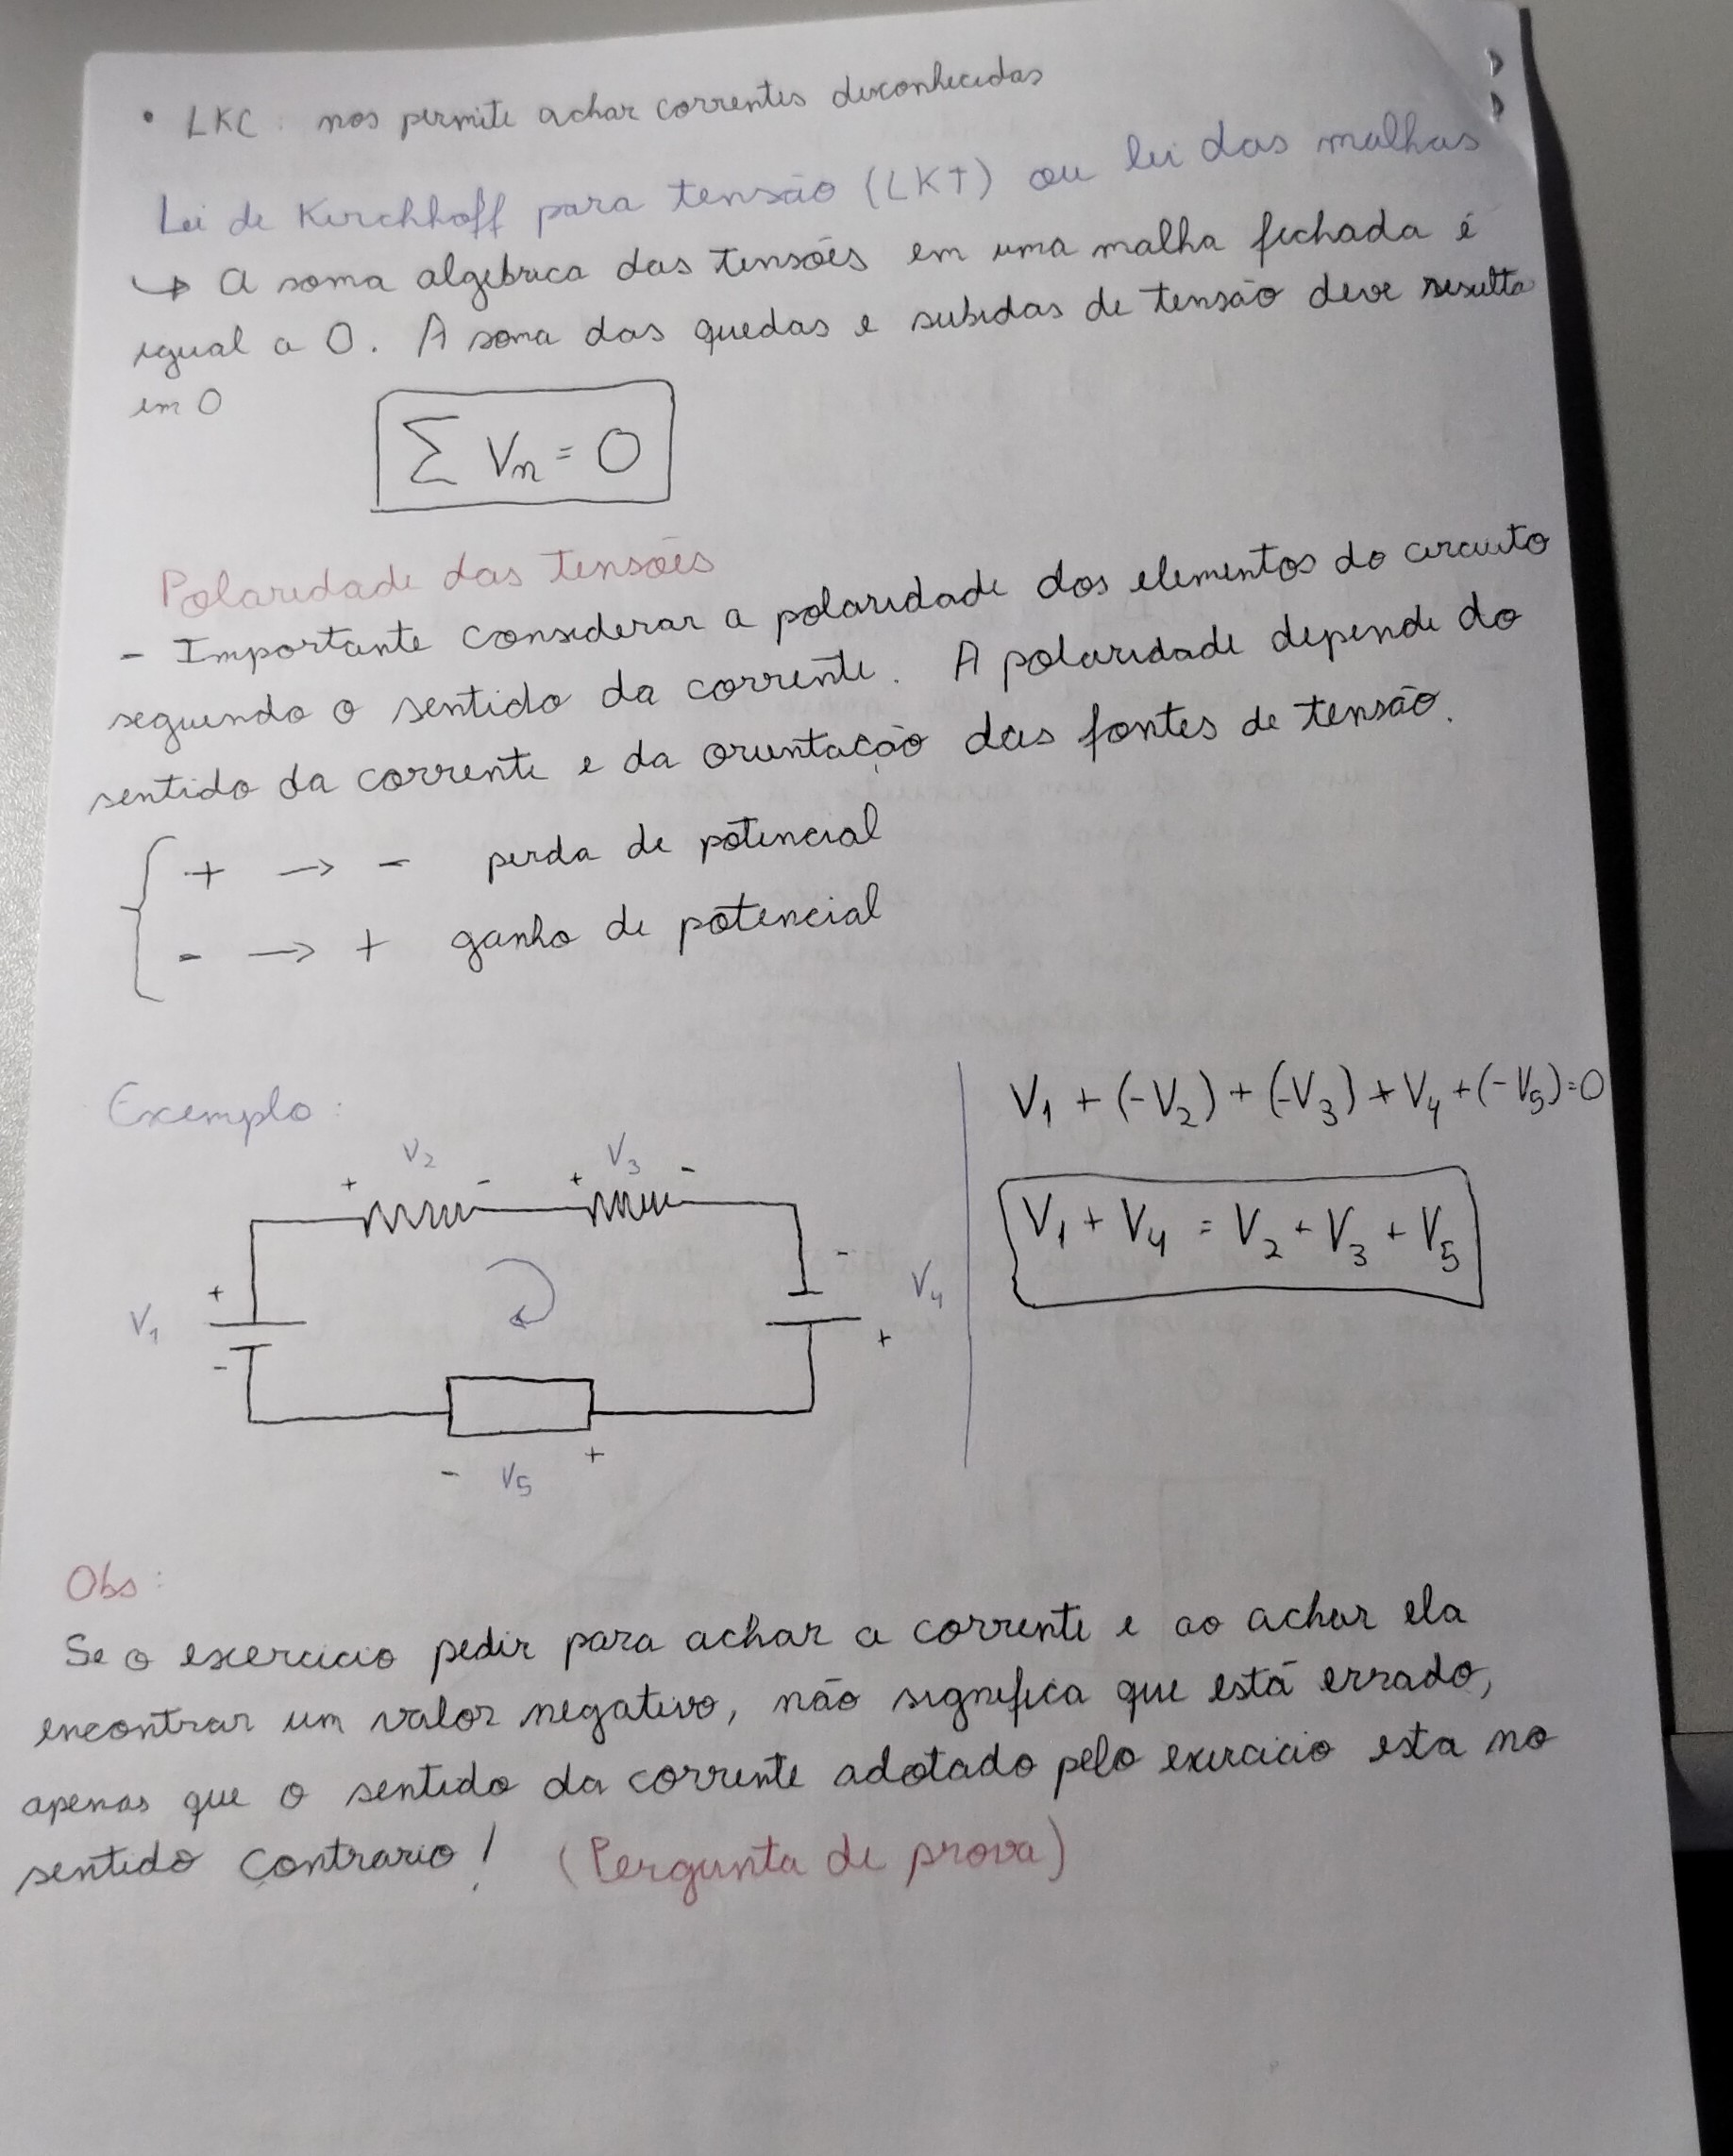 • LKC: nos permite achar correntes desconhecidas
Lei de Kirchhoff para tensão (LKT) ou lei das malhas
↳ A soma algebrica das tensões em uma malha fechada é
igual a 0. A soma das quedas e subidas de tensão deve resulta
em 0
∑ Vn = 0
Polaridade das tensões
- Importante considerar a polaridade dos elementos do circuito
seguindo o sentido da corrente. A polaridade depende do
sentido da corrente e da orientação das fontes de tensão.
+ → - perda de potencial
- → + ganho de potencial
Exemplo:
V1 + (-V2) + (-V3) + V4 + (-V5) = 0
V2 V3
+ - + -
V1 + V4 = V2 + V3 + V5
-
+ V4
V1 +
-
+
- V5
Obs:
Se o exercicio pedir para achar a corrente e ao achar ela
encontrar um valor negativo, não significa que está errado,
apenas que o sentido da corrente adotado pelo exercicio esta no
sentido contrario! (Pergunta de prova)